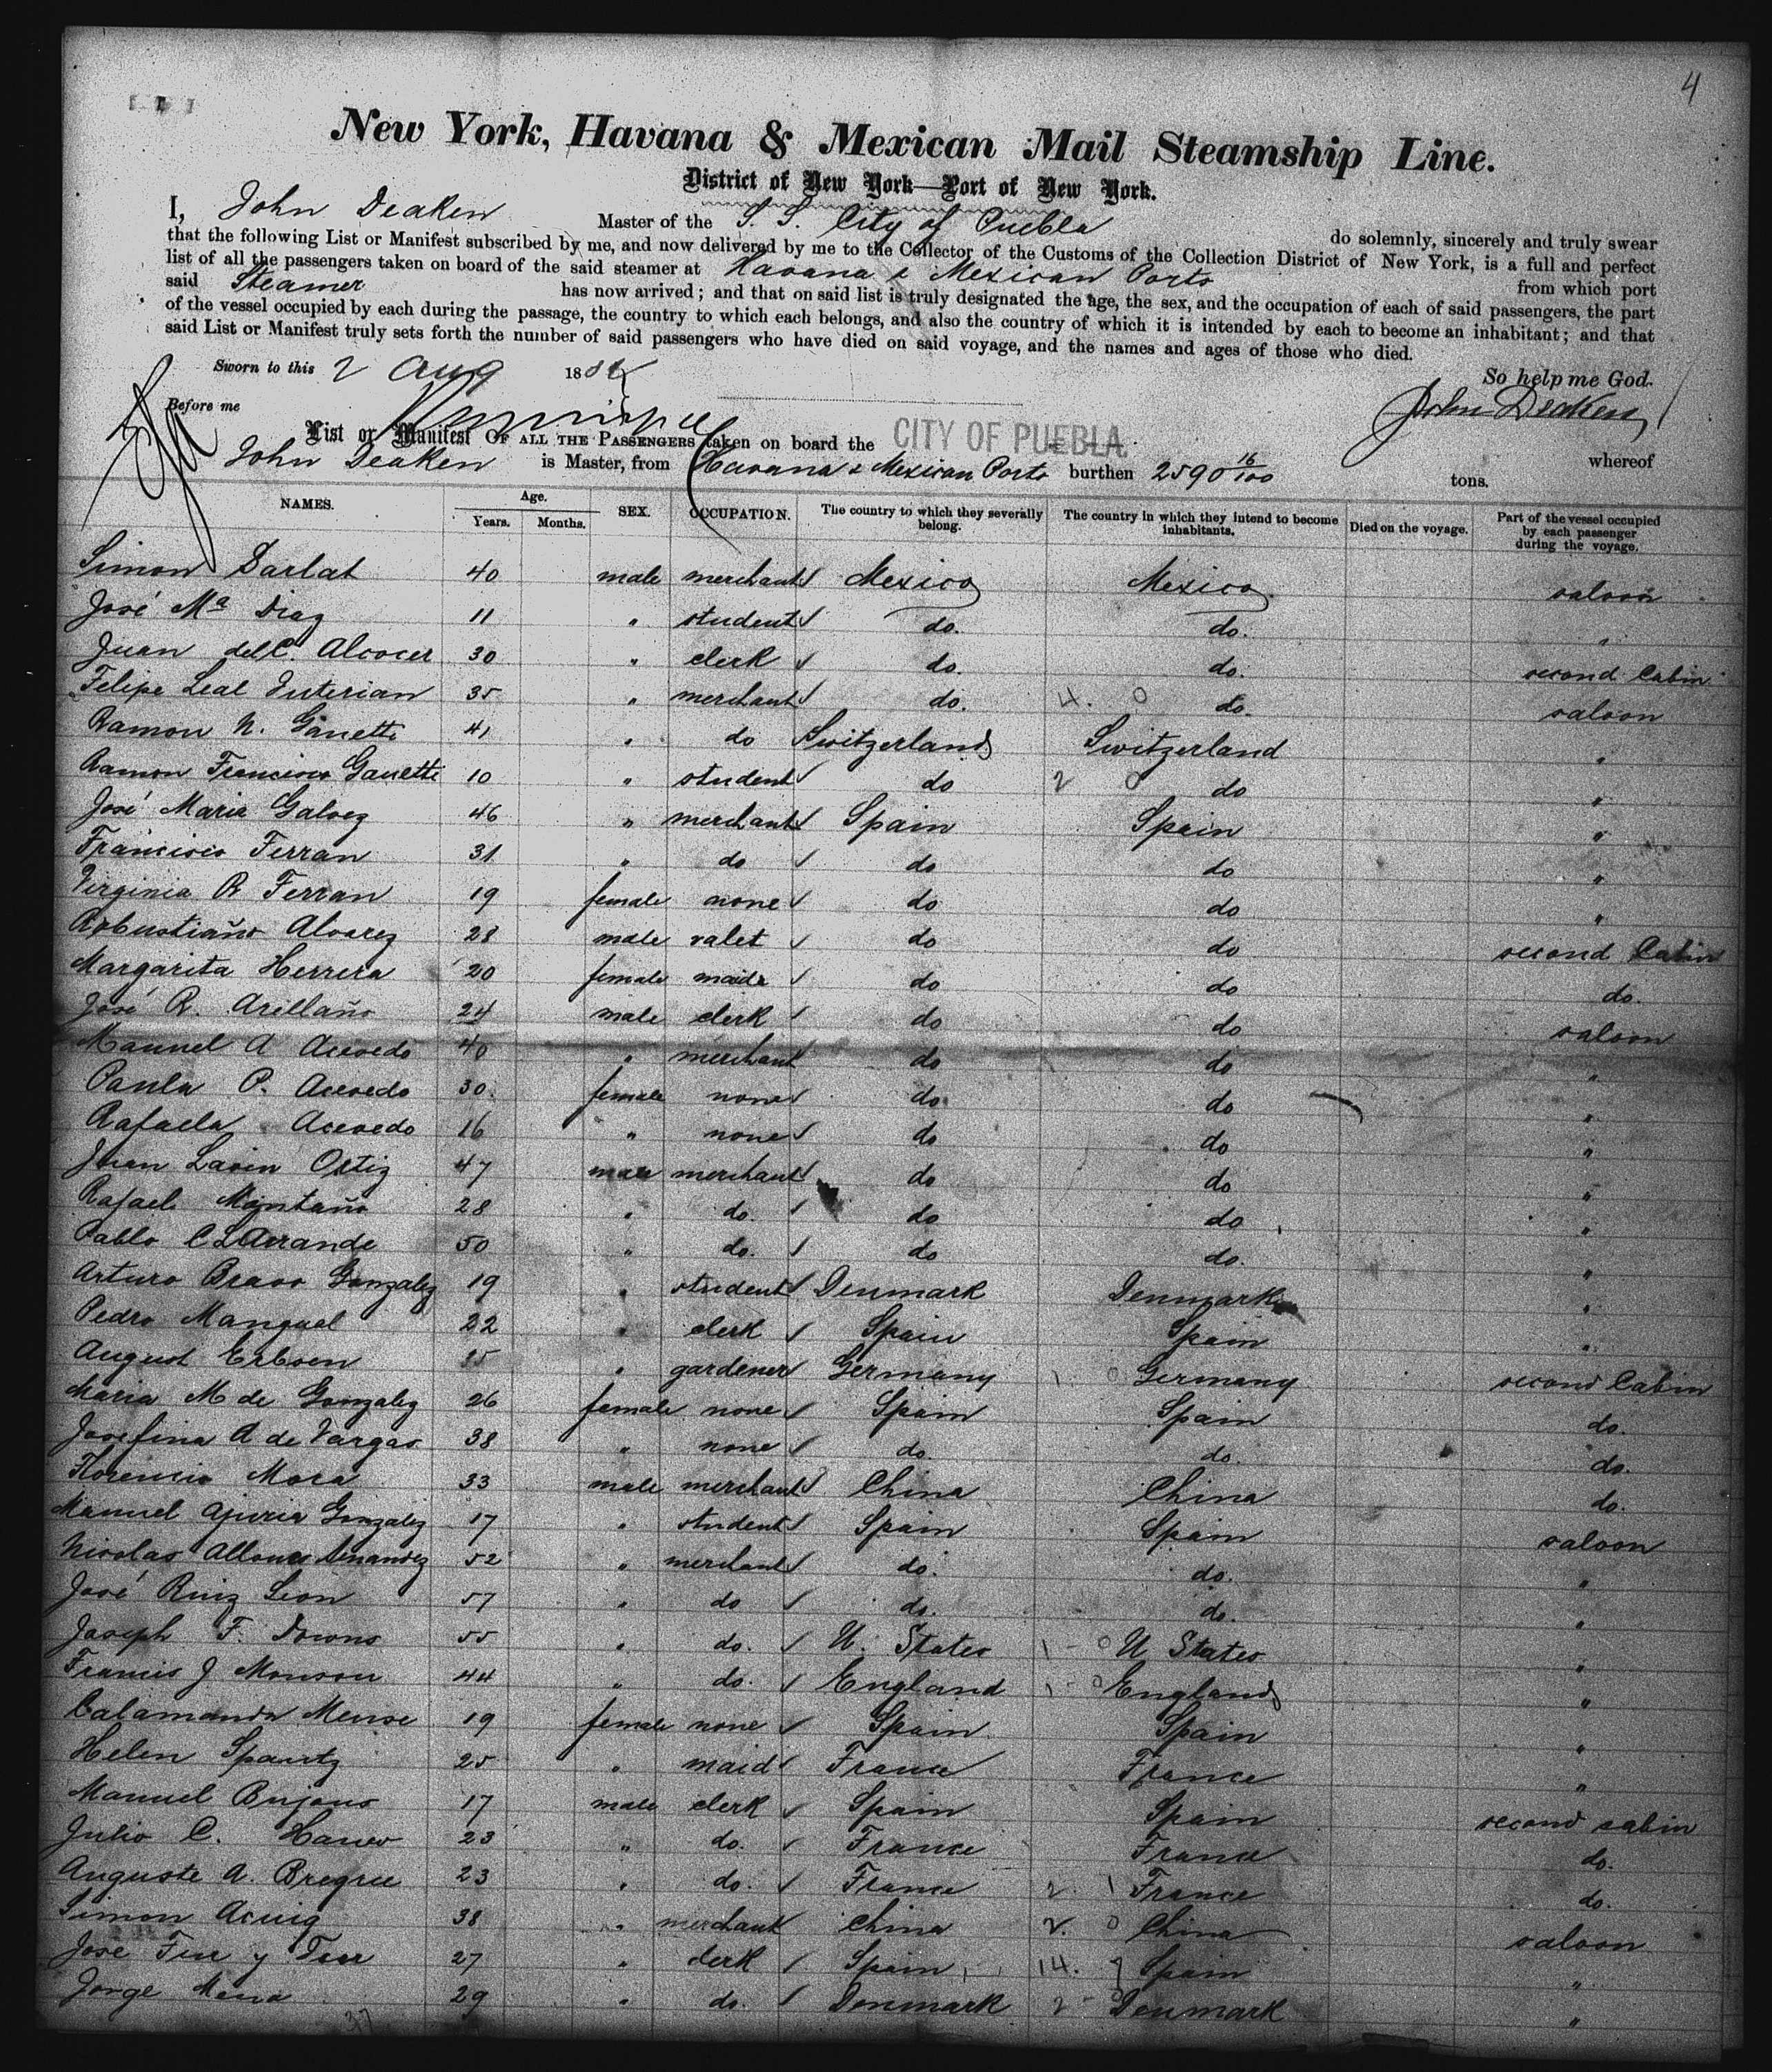 4
New York, Havana & Mexican Mail Steamship Line.
District of New York—Port of New York.
I, John Deaken Master of the S. S. City of Puebla do solemnly, sincerely and truly swear
that the following List or Manifest subscribed by me, and now delivered by me to the Collector of the Customs of the Collection District of New York, is a full and perfect
list of all the passengers taken on board of the said steamer at Havana & Mexican Ports from which port
said Steamer has now arrived; and that on said list is truly designated the age, the sex, and the occupation of each of said passengers, the part
of the vessel occupied by each during the passage, the country to which each belongs, and also the country of which it is intended by each to become an inhabitant; and that
said List or Manifest truly sets forth the number of said passengers who have died on said voyage, and the names and ages of those who died.
Sworn to this 2 Aug 188 So help me God.
Before me John Deaken
List or Manifest OF ALL THE PASSENGERS taken on board the CITY OF PUEBLA whereof
John Deaken is Master, from Havana & Mexican Ports burthen 2590 16/100 tons.
NAMES. Age. Years. Months. SEX. OCCUPATION. The country to which they severally belong. The country in which they intend to become inhabitants. Died on the voyage. Part of the vessel occupied by each passenger during the voyage.
Simon Sarlat 40 male merchant Mexico Mexico saloon
José Ma Diaz 11 " student do. do. "
Juan del C. Alcocer 30 " clerk do. do. second Cabin
Felipe Leal 35 " merchant do. 4. 0 do. saloon
Ramon N. 41 " do Switzerland Switzerland "
Ramon Francisco 10 " student do 2 0 do "
José Maria Galvez 46 " merchant Spain Spain "
Francisco Ferran 31 " do do do "
Virginia R Ferran 19 female none do do "
Robustiano Alvarez 28 male valet do do second Cabin
Margarita Herrera 20 female maid do do do.
José R. Arillaño 24 male clerk do do saloon
Manuel A Acevedo 40 " merchant do do "
Paula P. Acevedo 30 female none do do "
Rafaela Acevedo 16 " none do do "
Juan Lavin Ortiz 47 male merchant do do "
Rafael Montaño 28 " do. do do "
Pablo C 50 " do. do do. "
Arturo Bravo Gonzalez 19 " student Denmark Denmark "
Pedro Mangual 22 " clerk Spain Spain "
August 25 " gardener Germany 1 0 Germany second Cabin
Maria M de Gonzalez 26 female none Spain Spain do.
Josefina A de Vargas 38 " none do. do. do.
Florencio Mora 33 male merchant China China do.
Manuel Ajuria Gonzalez 17 " student Spain Spain saloon
Nicolas 52 " merchant do. do. "
José Ruiz Leon 57 " do do. do. "
Joseph F. Downs 55 " do. U. States 1 - 0 U States "
Francis J Monson 44 " do. England 1 - 0 England "
19 female none Spain Spain "
Helen 25 " maid France France "
Manuel Bujons 17 male clerk Spain Spain second cabin
Julio C. 23 " do. France France do.
Auguste A. 23 " do. France 2. 1 France do.
Simon 38 " merchant China 2. 0 China saloon
José 27 " clerk Spain 14. 9 Spain "
Jorge Mena 29 " do. Denmark 2 - 0 Denmark "
37